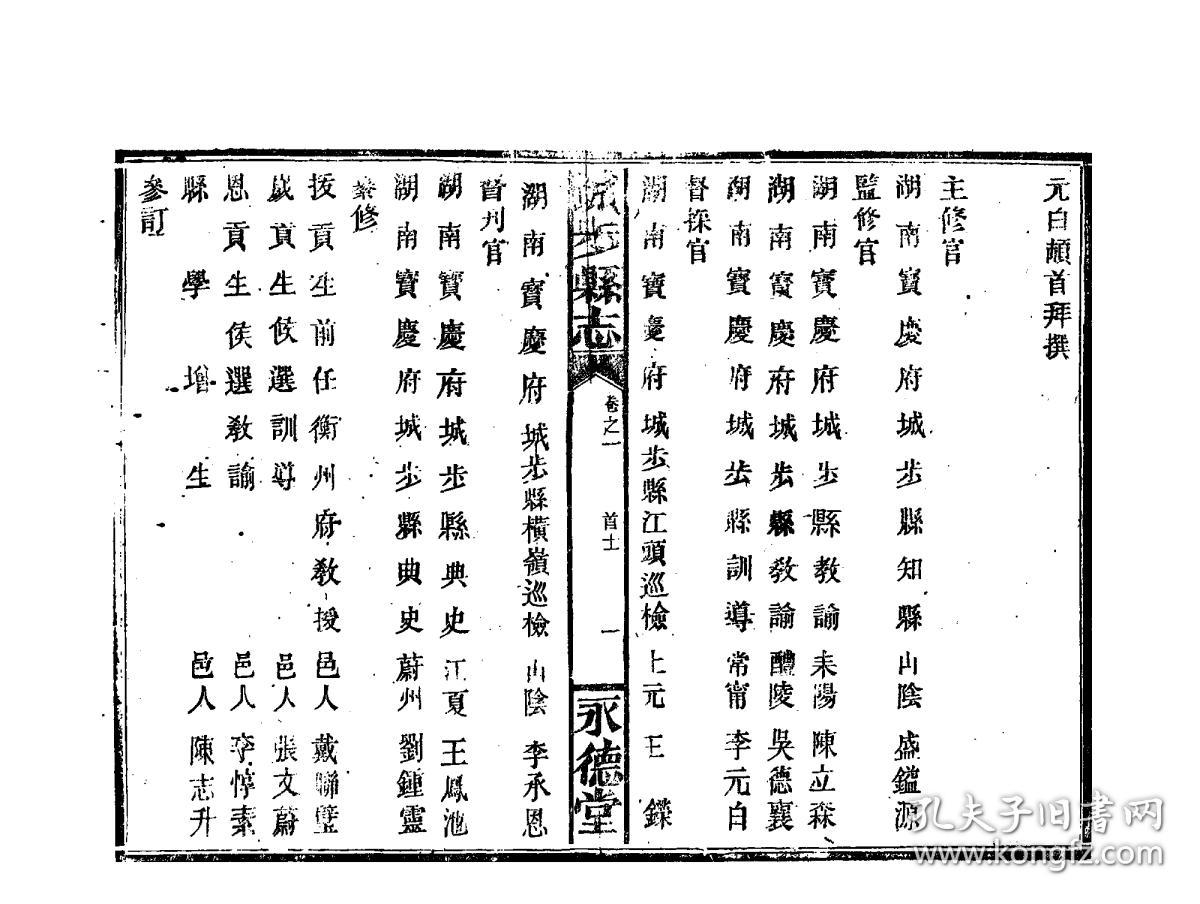 元白頓首拜撰
主修官
湖南寶慶府城步縣知縣山陰盛鎰源
監修官
湖南寶慶府城步縣教諭耒陽陳立森
湖南寶慶府城步縣教諭醴陵吳德襄
湖南寶慶府城步縣訓導常甯李元白
督採官
湖南寶慶府城步縣江頭巡檢上元王鑅
城步縣志
卷之一
首士
一
永德堂
湖南寶慶府城步縣橫嶺巡檢山陰李承恩
督刊官
湖南寶慶府城步縣典史江夏王鳳池
湖南寶慶府城步縣典史蔚州劉鍾靈
纂修
拔貢生前任衡州府敎授邑人戴聯璧
歲貢生候選訓導邑人張文蔚
恩貢生候選敎諭邑人李惇素
縣學增生邑人陳志升
參訂
孔夫子旧书网
www.kongfz.com